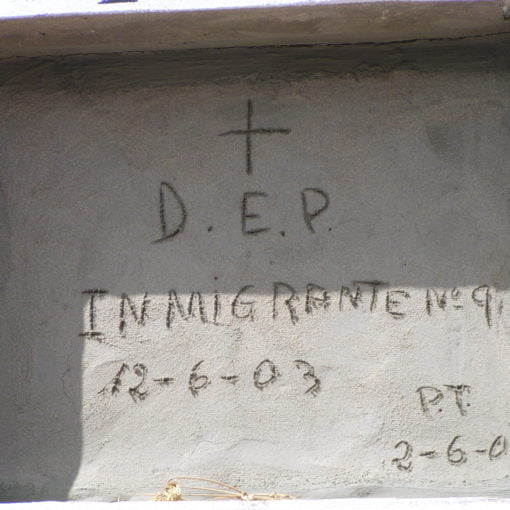 D.E.P.
INMiGRANTE Nº 9.
12-6-03
P.T.
2-6-0